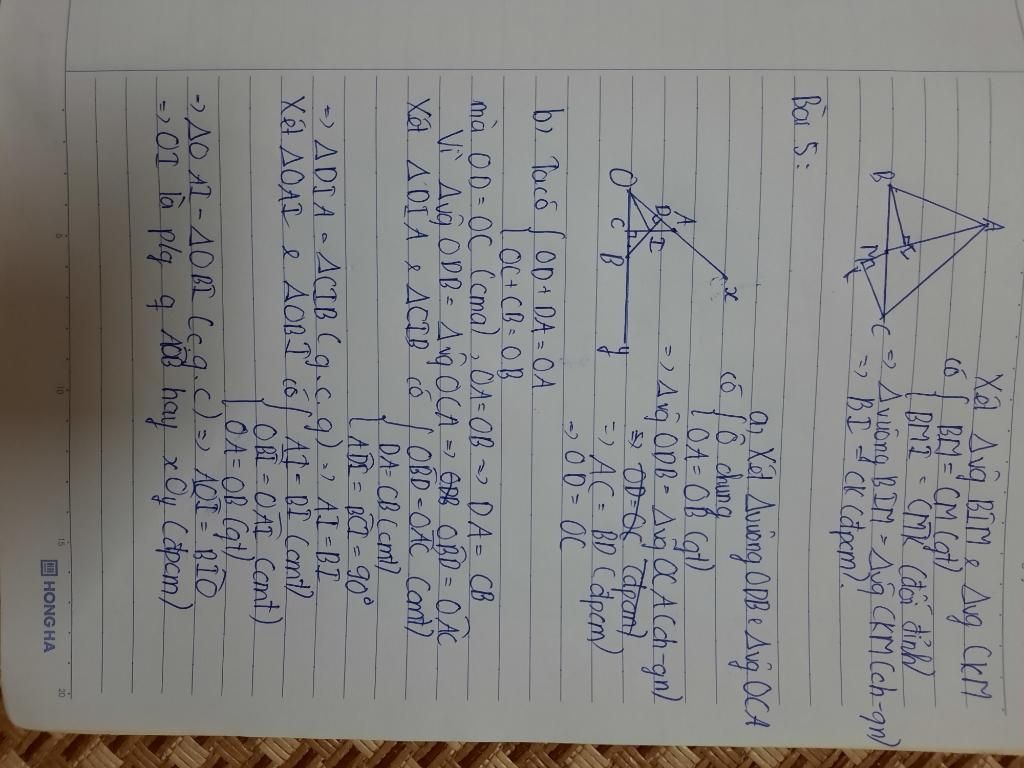 Xét Δvg BIM & Δvg CKM
có { BM = CM (gt)
BMI = CMK (đối đỉnh)
=> Δvuông BIM = Δvg CKM (ch-gn)
=> BI = CK (đpcm).
A
B
K
M
I
C
Bài 5:
a, Xét Δvuông ODB & Δvg OCA
có { Ô chung
OA = OB (gt)
=> Δvg ODB = Δvg OCA (ch-gn)
=> OD = OC (đpcm)
=> AC = BD (đpcm)
=> OD = OC
x
A
D
I
O
C
B
y
b) Ta có { OD + DA = OA
OC + CB = OB
mà OD = OC (cma), OA = OB => DA = CB
Vì Δvg ODB = Δvg OCA => ODB OBD = OAC
Xét ΔDIA & ΔCIB có { OBD = OAC (cmt)
DA = CB (cmt)
ADI = BCI = 90°
=> ΔDIA = ΔCIB (g.c.g) => AI = BI
Xét ΔOAI & ΔOBI có { AI = BI (cmt)
OBI = OAI (cmt)
OA = OB (gt)
=> ΔOAI = ΔOBI (c.g.c) => AOI = BIO
=> OI là plg g AOB hay xOy (đpcm)
5
10
15
20
HONG HA